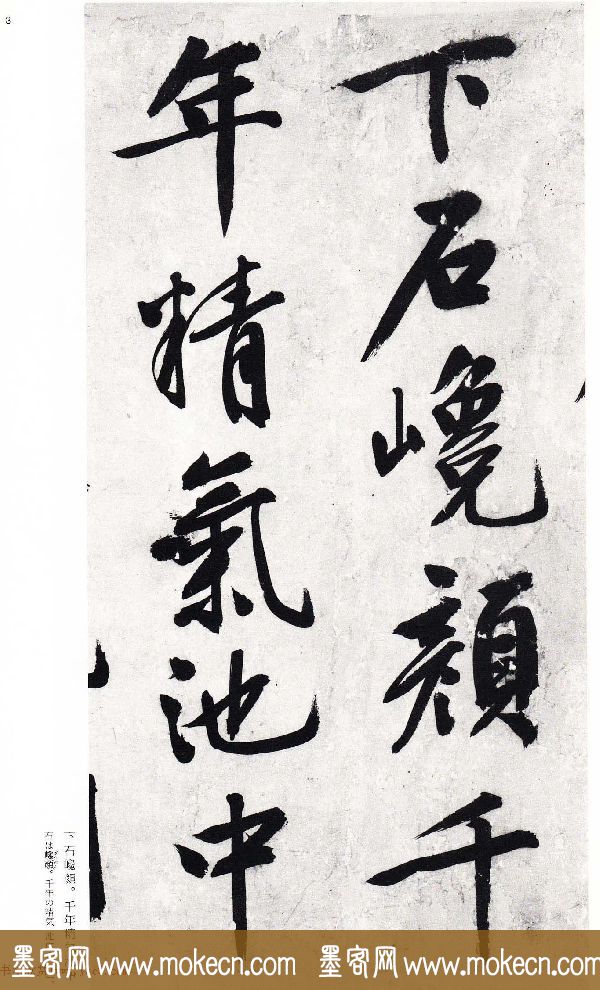 3
下石巉顏千
年精氣池中
下石巉顏。千年精
石は巉顏。千年の精気池
墨客网 www.mokecn.com 墨客网 www.mokecn.com